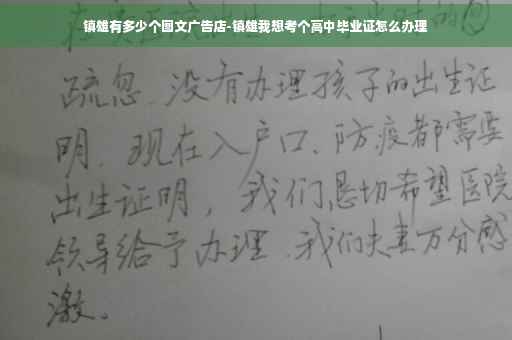 镇雄有多少个图文广告店-镇雄我想考个高中毕业证怎么办理
疏忽、没有办理孩子的出生证
明、现在入户口、防疫都需要
出生证明，我们恳切希望医院
领导给予办理、我们夫妻万分感
激。